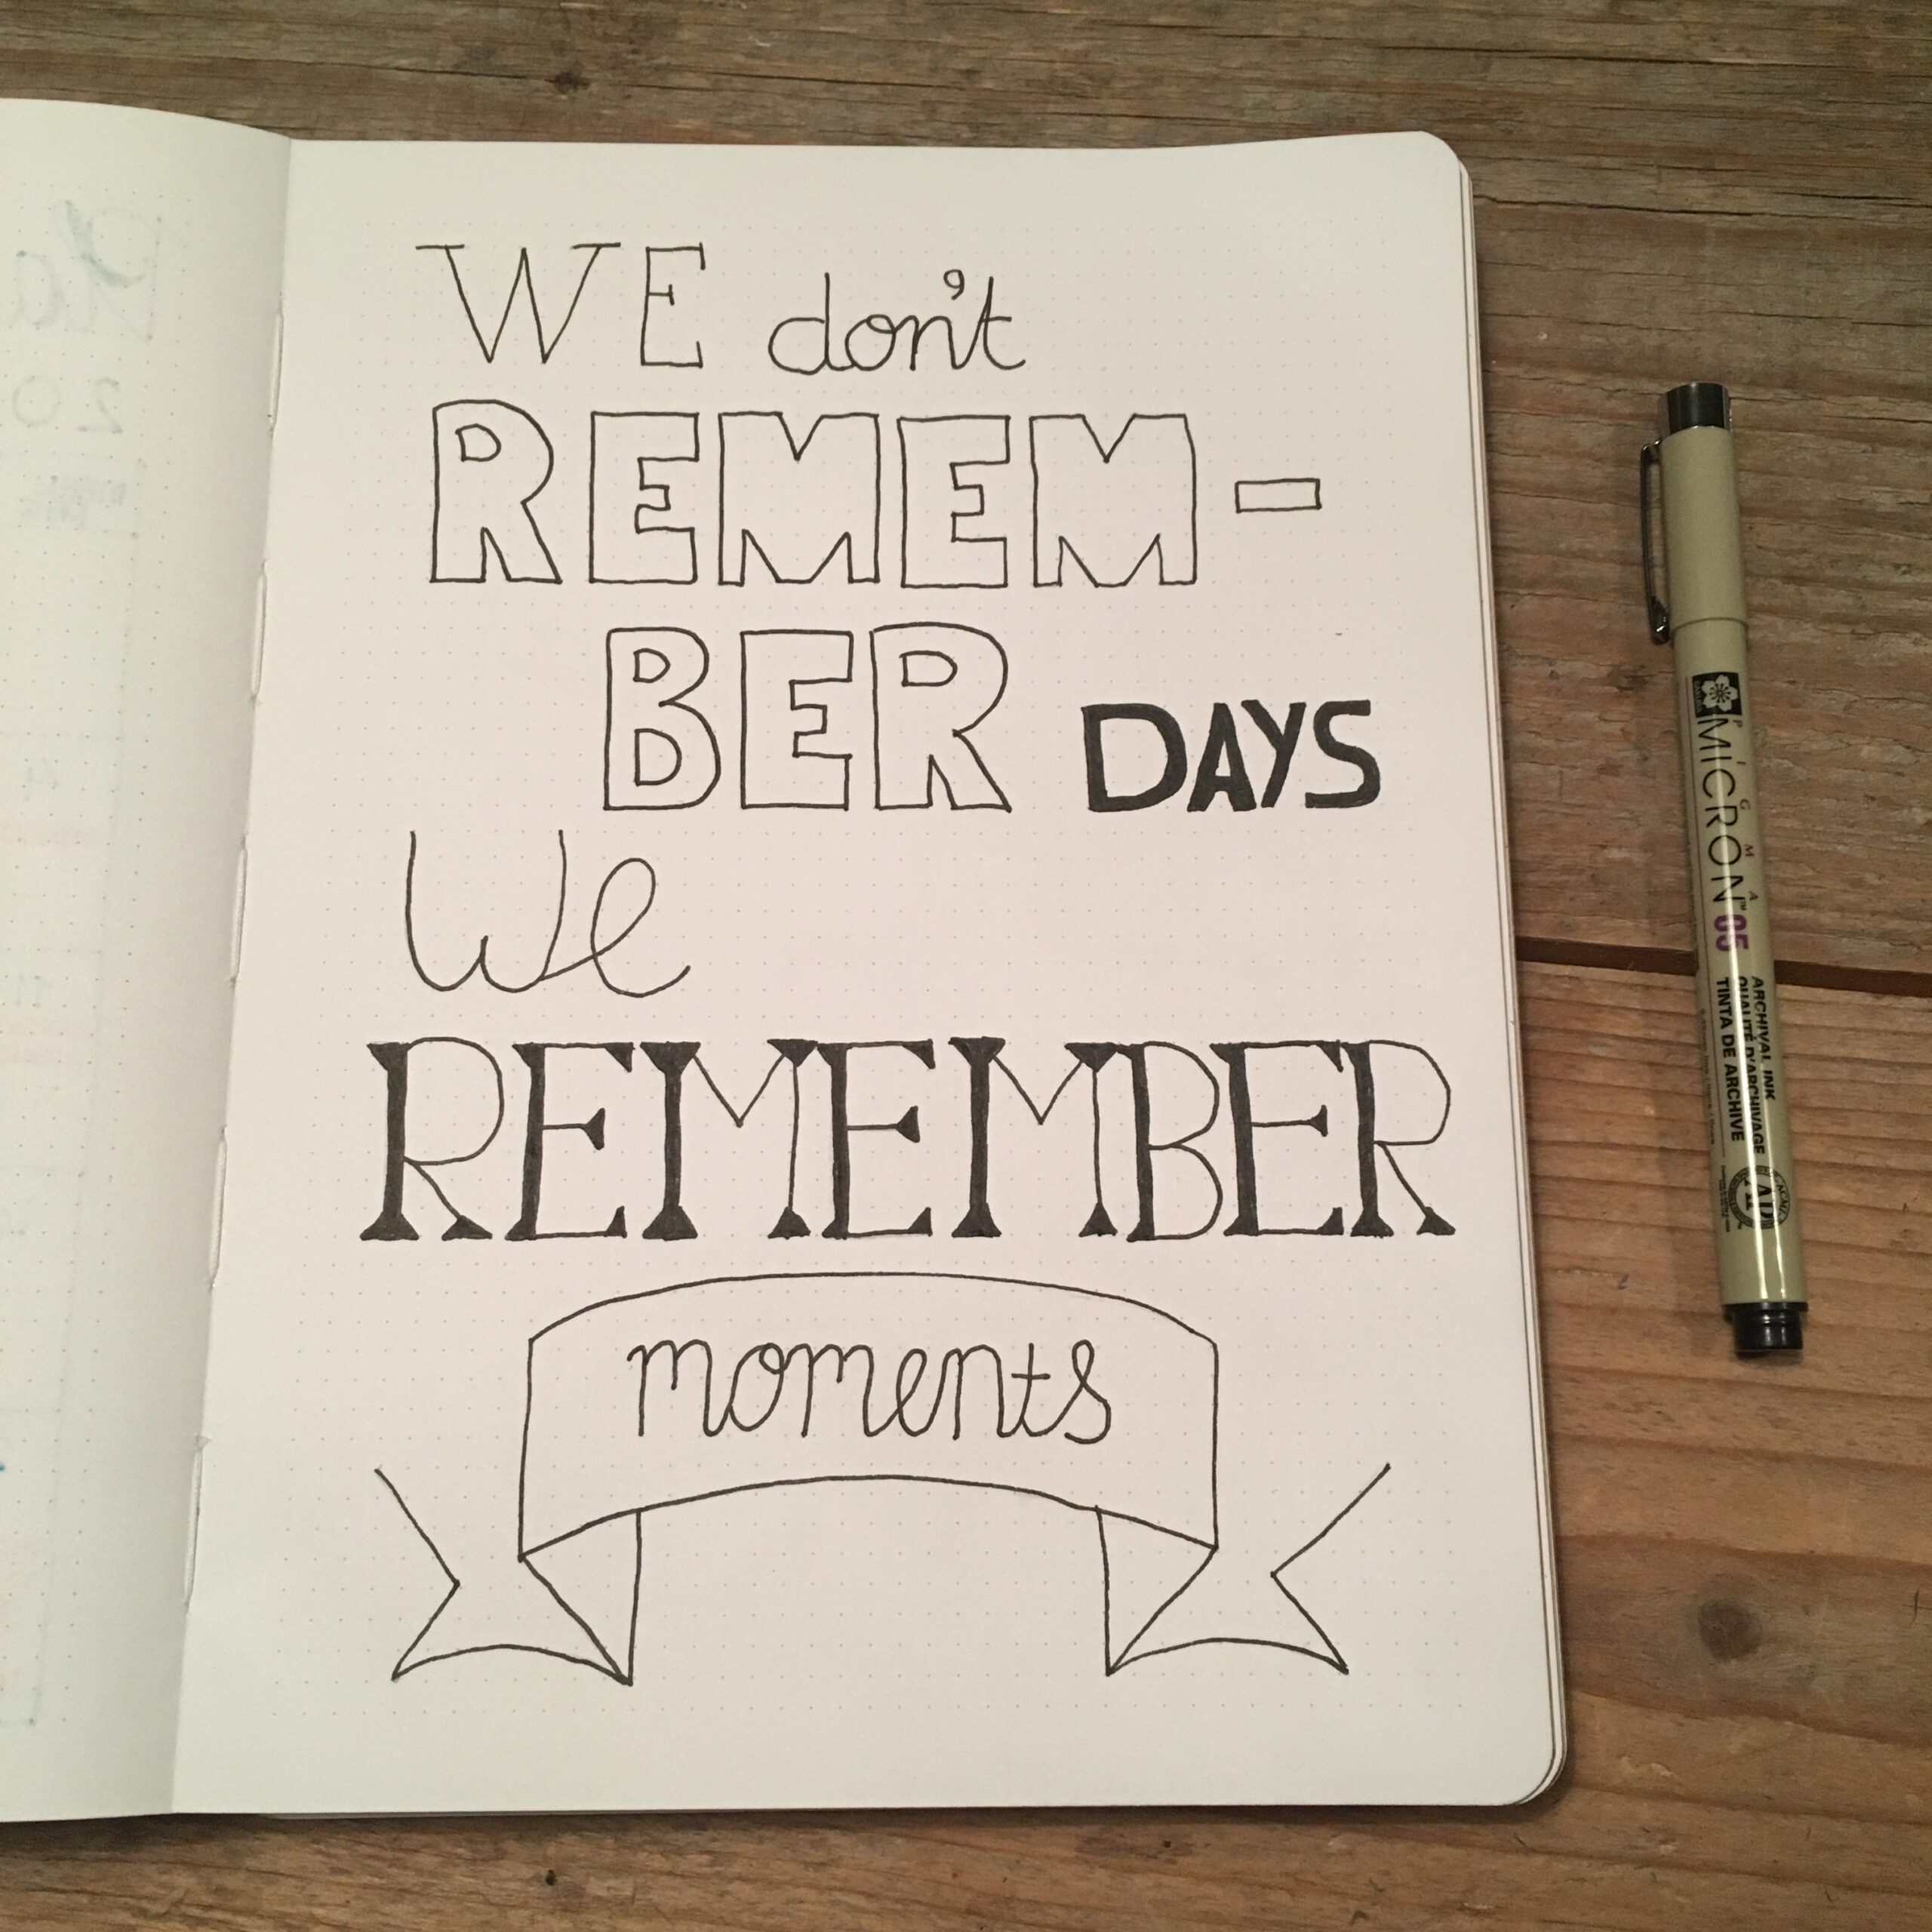 WE don't
REMEM-
BER DAYS
We
REMEMBER
moments
PIGMA
MICRON™ 05
ARCHIVAL INK
QUALITÉ D'ARCHIVAGE
TINTA DE ARCHIVE